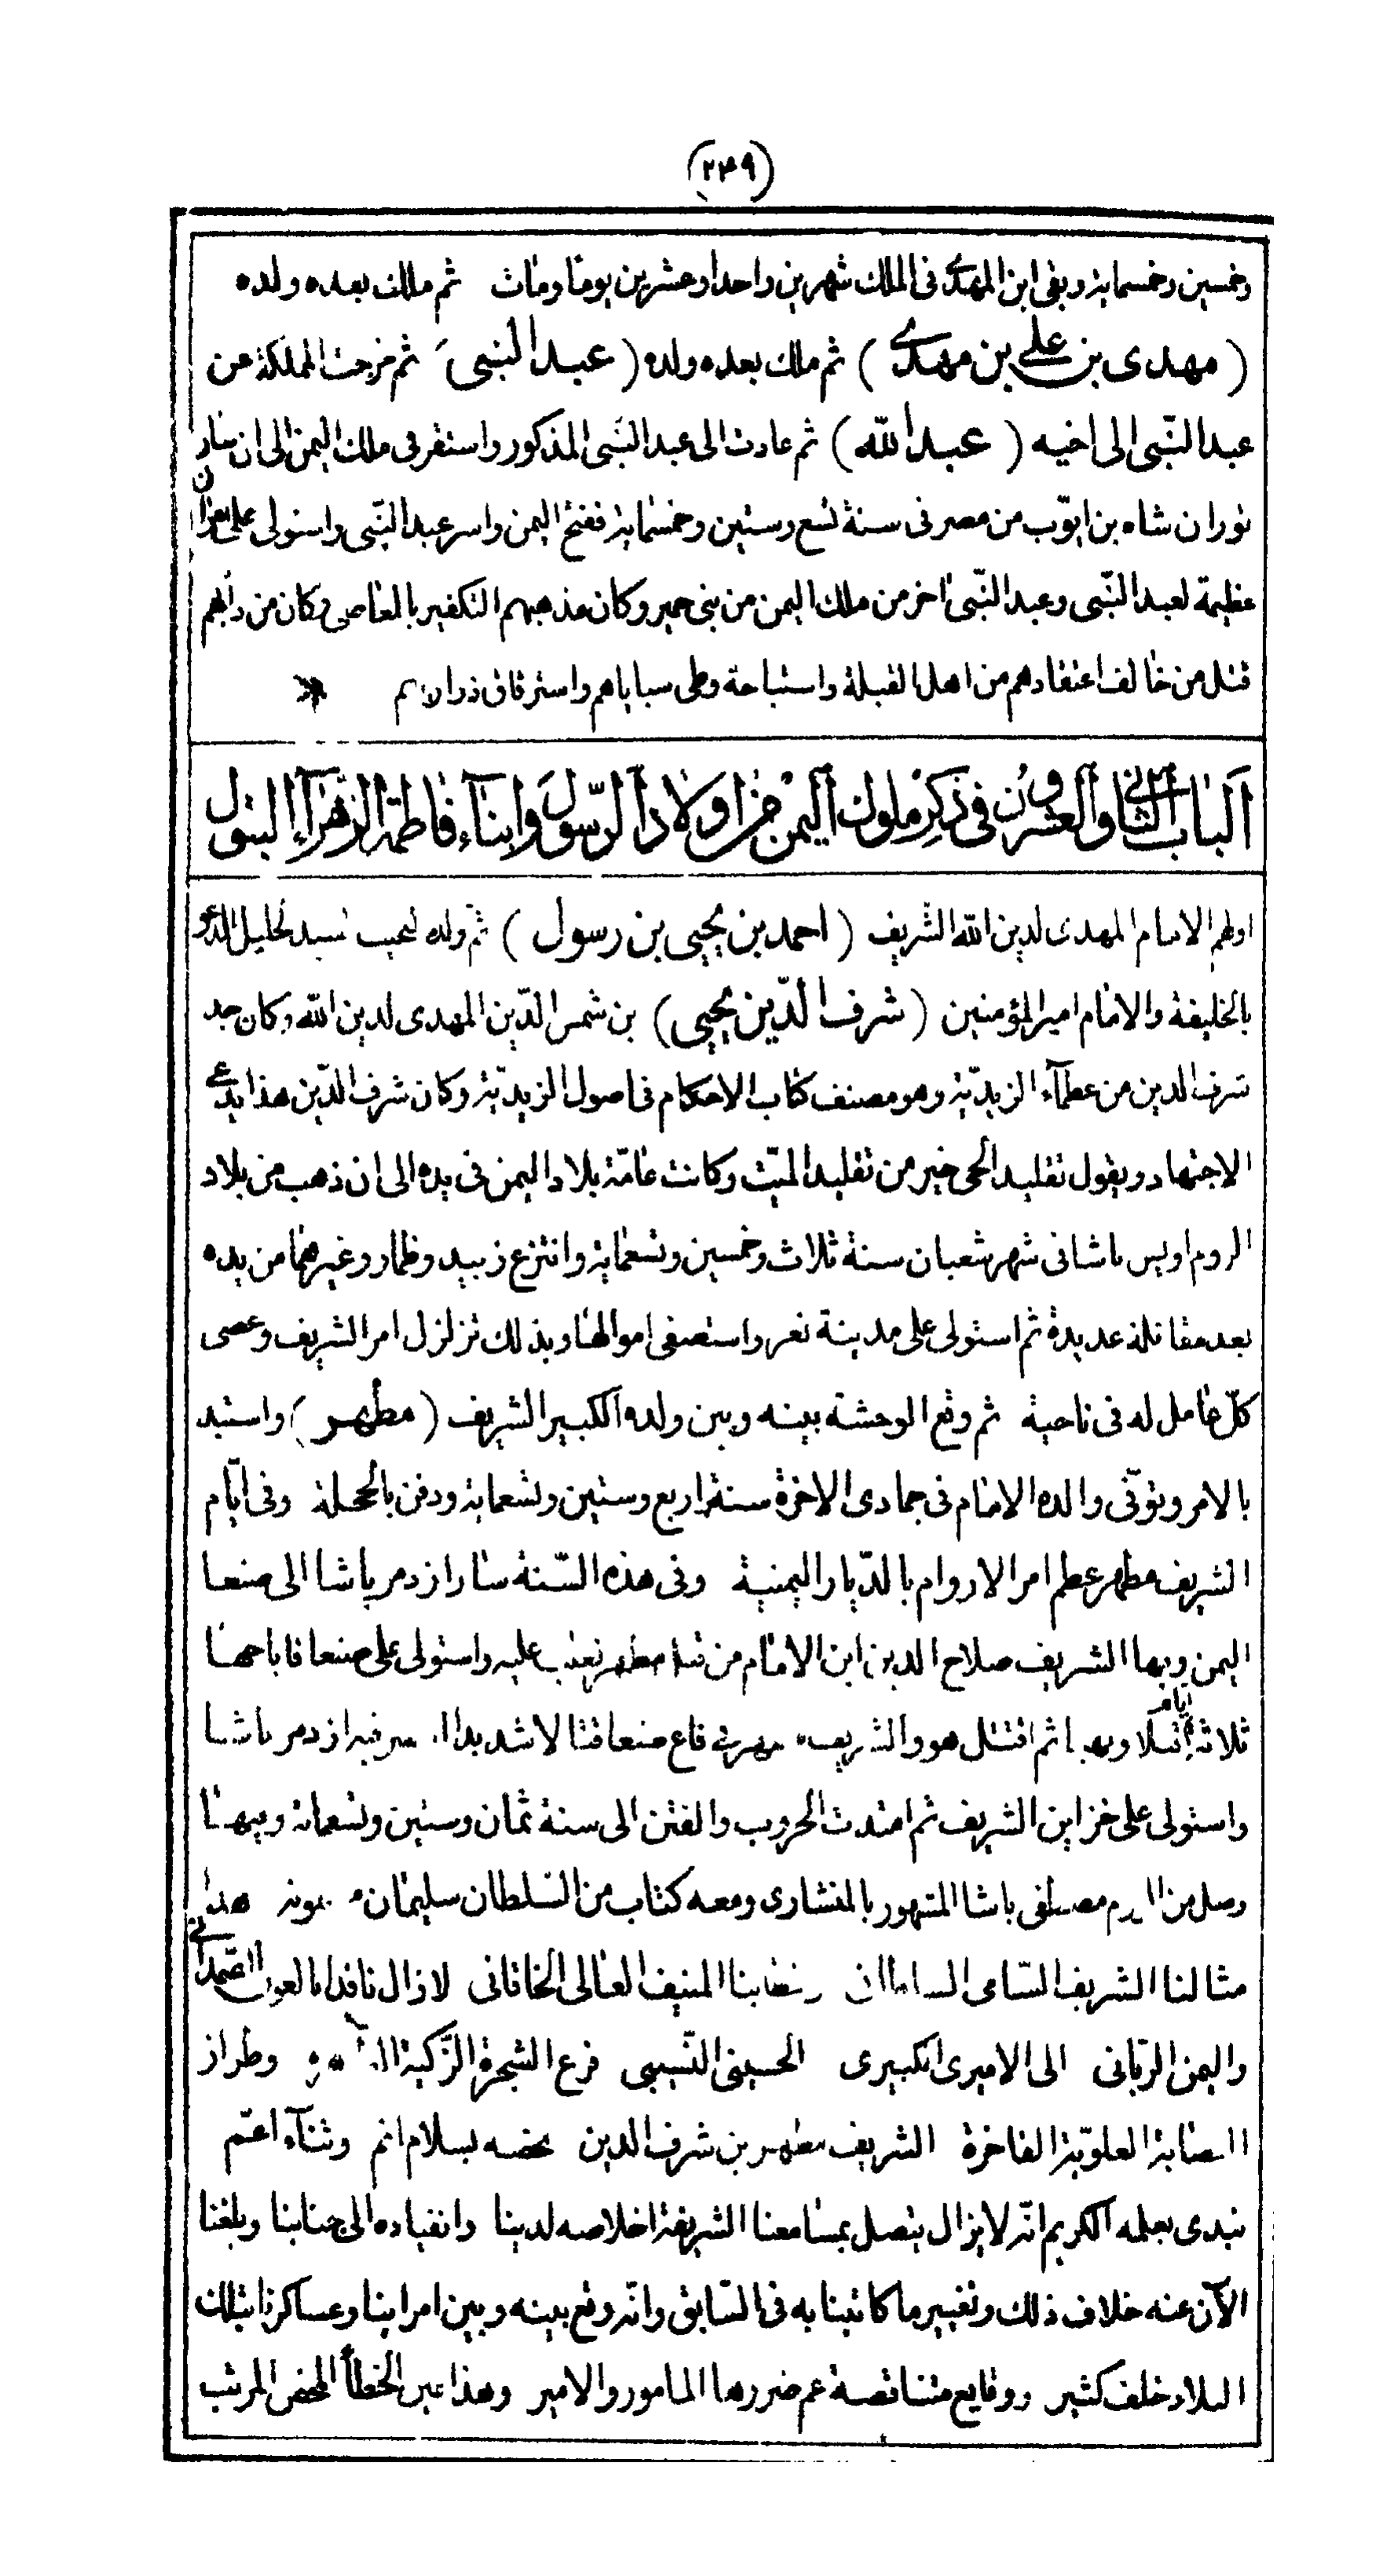 (٢٤٩)
وخمسين وخمسماية وبقى ابن المهدى فى الملك شهرين واحدا وعشرين يوما ومات ثم ملك بعده ولده
( مهدى بن على بن مهدى ) ثم ملك بعده ولده ( عبد النبى ثم خرجت المملكة عن
عبد النّبى الى اخيه ( عبد الله ) ثم عادت الى عبد النّبى المذكور واستقر فى ملك اليمن الى ان سار
توران شاه بن ايّوب من مصر فى سنة تسع وستين وخمسماية ففتح اليمن واسر عبد النّبى واستولى على
عظيمة لعبد النّبى وعبد النّبى اخر من ملك اليمن من بنى حمير وكان مذهبهم التكفير بالمعاصى وكان من دأبهم
قتل من خالف اعتقادهم من اهل القبلة واستباحة وطى سباياهم واسترقاق
اَلباب الثانى والعشرون فى ذكر ملوك اليمن من اولاد الرّسول وابناء فاطمة الزهراء البتول
اولهم الامام المهدى لدين الله الشريف ( احمد بن يحيى بن رسول ) ثم ولده
بالخليفة والامام امير المؤمنين ( شرف الدّين يحيى ) بن شمس الدّين المهدى لدين الله وكان جد
شرف الدين من عظمآء الزيديّة وهو مصنف كتاب الاحكام فى اصول الزيديّة وكان شرف الدّين هذا يدعى
الاجتهاد ويقول تقليد الحى خير من تقليد الميّت وكانت عامّة بلاد اليمن فى يده الى ان ذهب من بلاد
الروم اويس باشا فى شهر شعبان سنة ثلاث وخمسين وتسعماية وانتزع زبيد وظمار وغيرهما من يده
بعد مقاتلة عديدة ثم استولى على مدينة تعز واستصفى اموالها وبذلك تزلزل امر الشريف وعصى
كلّ عامل له فى ناحية ثم وقع الوحشة بينه وبين ولده الكبير الشريف ( مطهر ) واستبد
بالامر وتوفّى والده الامام فى جمادى الاخرة سنة اربع وستين وتسعماية ودفن بالحجلة وفى ايّام
الشريف مطهر عظم امر الاروام بالدّيار اليمنية وفى هذه السّنة سار ازدمر باشا الى صنعا
اليمن وبها الشريف صلاح الدين ابن الامام من قبل مطهر عليه واستولى على صنعا فاباحها
ثلاثة ايام قتلا ونهبا ثم اقتتل هو والشريف مطهر فى قاع صنعا قتالا شديدا ازدمر باشا
واستولى على خزاين الشريف ثم امتدت الحروب والفتن الى سنة ثمان وستين وتسعماية وبيهنا
وصل من الروم مصطفى باشا المشهور بالمنشارى ومعه كتاب من السّلطان سليمان هذا
مثالنا الشريف السّامى السلطانى وخطابنا المنيف العالى الخاقانى لا زال نافذا بالعون الصّمدانى
واليمن الربّانى الى الاميرى الكبيرى الحسينى النّسيبى فرع الشجرة الزّكية وطراز
العصابة العلويّة الفاخرة الشريف مطهر بن شرف الدين نخصه بسلام اتم وثنآء اعمّ
نبدى بعلمه الكريم انّه لا يزال يتصل بمسامعنا الشريفة اخلاصه لدينا وانقياده الى جنابنا وبلغنا
الآن عنه خلاف ذلك وتغيير ما كاتبنا به فى السّابق وانّه وقع بينه وبين امراينا وعساكرنا بتلك
البلاد خلف كثير ووقايع متناقصة عم ضررها المامور والامير وهذا عين الخطأ المحض المرتب